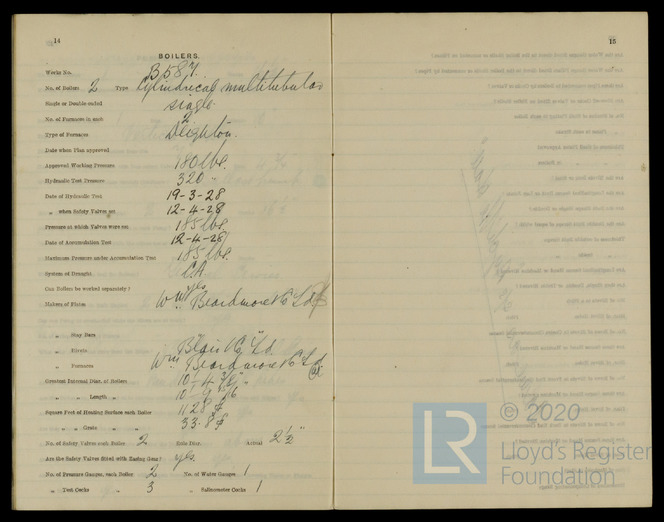 14
BOILERS.
Works No. B 587.
No. of Boilers 2 Type Cylindrical multitubular
Single or Double-ended single
No. of Furnaces in each 2
Type of Furnaces Deighton.
Date when Plan approved
Approved Working Pressure 180 lbs.
Hydraulic Test Pressure 320 "
Date of Hydraulic Test 19-3-28
" when Safety Valves set 12-4-28
Pressure at which Valves were set 185 lbs.
Date of Accumulation Test 12-4-28
Maximum Pressure under Accumulation Test 185 lbs.
System of Draught
Can Boilers be worked separately? yes
Makers of Plates Wm. Beardmore & Co Ld
" Stay Bars "
" Rivets Blair & Co Ld.
" Furnaces Wm. Beardmore & Co Ld
Greatest Internal Diam. of Boilers 10'-4
" " Length " 10'-9
Square Feet of Heating Surface each Boiler 1128
" " Grate " " 33.8
No. of Safety Valves each Boiler 2 Rule Diar. Actual 2½"
Are the Safety Valves fitted with Easing Gear? yes.
No. of Pressure Gauges, each Boiler 2 No. of Water Gauges 1
" Test Cocks " 3 " Salinometer Cocks 1
15
© 2020
LR
Lloyd's Register
Foundation